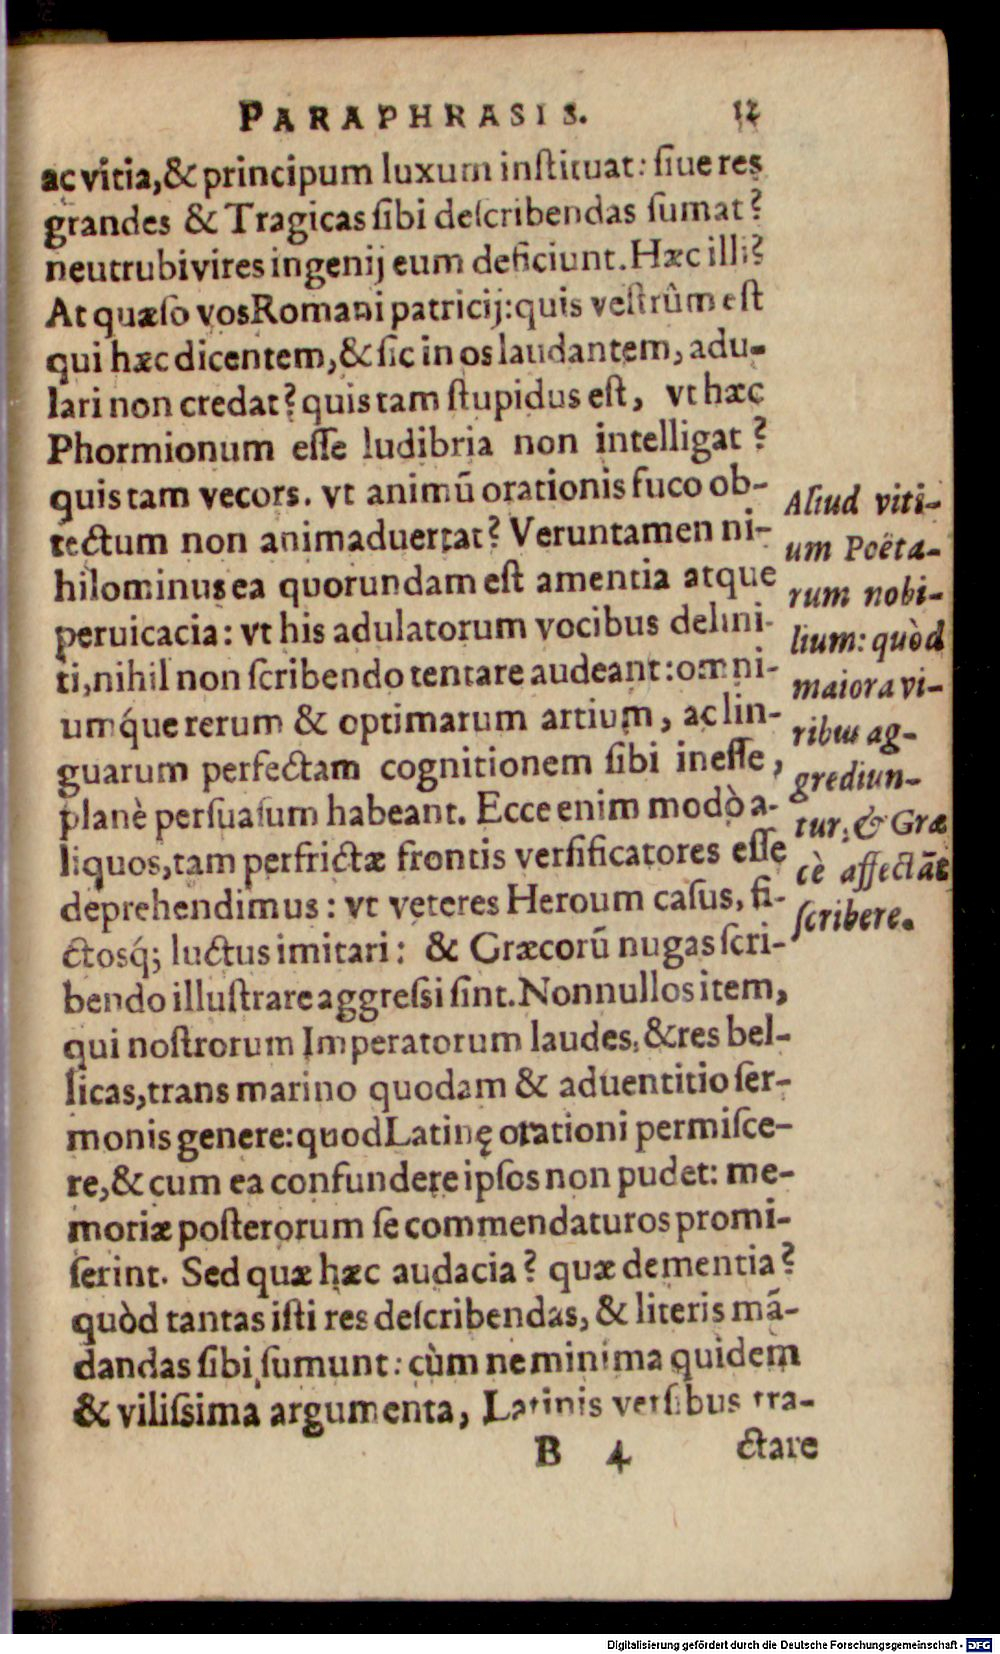 PARAPHRASIS. 12
ac vitia,& principum luxum instituat: siue res
grandes & Tragicas sibi describendas sumat?
neutrubi vires ingenij eum deficiunt. Hæc illi?
At quæso vos Romani patricij: quis vestrûm est
qui hæc dicentem,& sic in os laudantem, adu-
lari non credat? quis tam stupidus est, vt hæc
Phormionum esse ludibria non intelligat?
quis tam vecors. vt animū orationis fuco ob-
tectum non animaduertat? Veruntamen ni-
hilominus ea quorundam est amentia atque
peruicacia: vt his adulatorum vocibus delini-
ti, nihil non scribendo tentare audeant: omni-
umq́ue rerum & optimarum artium, ac lin-
guarum perfectam cognitionem sibi inesse,
planè persuasum habeant. Ecce enim modò a-
liquos, tam perfrictæ frontis versificatores esse
deprehendimus: vt veteres Heroum casus, fi-
ctosq́; luctus imitari: & Græcorū nugas scri-
bendo illustrare aggressi sint. Nonnullos item,
qui nostrorum Imperatorum laudes, & res bel-
licas, trans marino quodam & aduentitio ser-
monis genere: quod Latinę orationi permisce-
re, & cum ea confundere ipsos non pudet: me-
moriæ posterorum se commendaturos promi-
serint. Sed quæ hæc audacia? quæ dementia?
quòd tantas isti res describendas, & literis mā-
dandas sibi sumunt: cùm ne minima quidem
& vilissima argumenta, Latinis versibus tra-
B 4 ctare
Aliud viti-
um Poëta-
rum nobi-
lium: quòd
maiora vi-
ribus ag-
grediun-
tur: & Græ
cè affectāt
scribere.
Digitalisierung gefördert durch die Deutsche Forschungsgemeinschaft - DFG